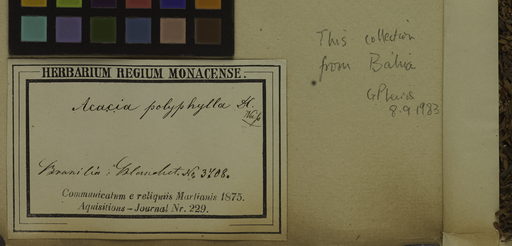 This collection
from Bahia
GPLewis
8.9.1983
HERBARIUM REGIUM MONACENSE.
Acacia polyphylla
Brasilia: Blanchet. No 3708.
Communicatum e reliquiis Martianis 1875.
Aquisitions – Journal Nr. 229.